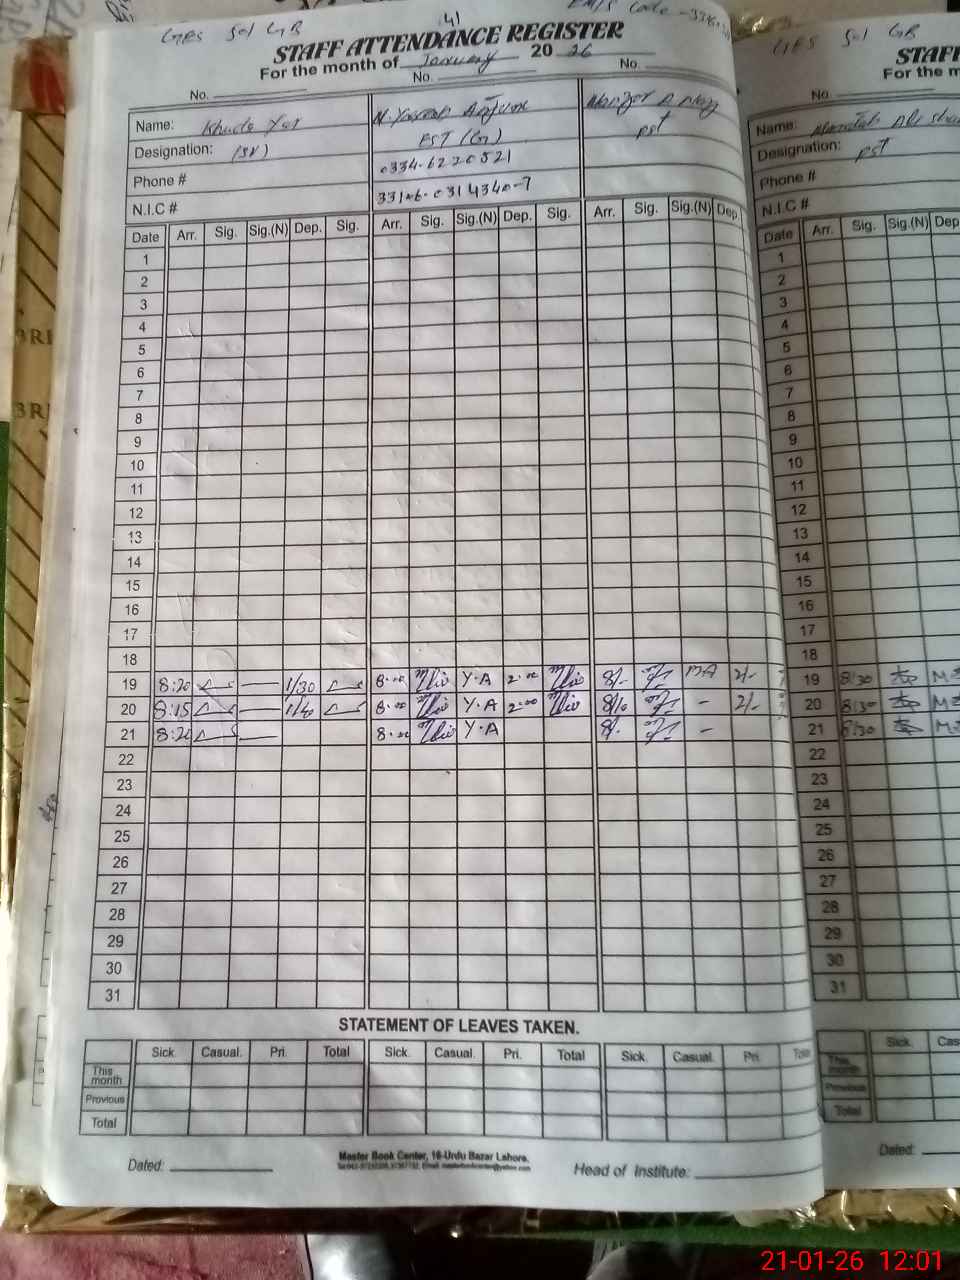 41
GES 501 GB
STAFF ATTENDANCE REGISTER
For the month of January 20 26
No. No. No.
Name: Khuda Yar
Designation: (SV) EST (G) pst
Phone # 0334-6220521
N.I.C #
Date Arr. Sig. Sig.(N) Dep. Sig. Arr. Sig. Sig.(N) Dep. Sig. Arr. Sig. Sig.(N) Dep.
1
2
3
4
5
6
7
8
9
10
11
12
13
14
15
16
17
18
19 8:20 — 1/30 8:00 Y.A 2:00 8/- MA 2/-
20 8:15 — 1/40 8:00 Y.A 2:00 - 2/-
21 — 8:00 Y.A 8/- -
22
23
24
25
26
27
28
29
30
31
STATEMENT OF LEAVES TAKEN.
Sick. Casual. Pri. Total Sick. Casual. Pri. Total Sick. Casual. Pri. Total
This month
Previous
Total
Master Book Center, 16-Urdu Bazar Lahore.
Dated: Head of Institute:
GES 501 GB
STAFF
For the m
No.
Name:
Designation: pst
Phone #
N.I.C #
Date Arr. Sig. Sig.(N) Dep
1
2
3
4
5
6
7
8
9
10
11
12
13
14
15
16
17
18
19 8:30
20 8:30
21 8:30
22
23
24
25
26
27
28
29
30
31
Sick. Cas
This month
Previous
Total
Dated:
21-01-26 12:01